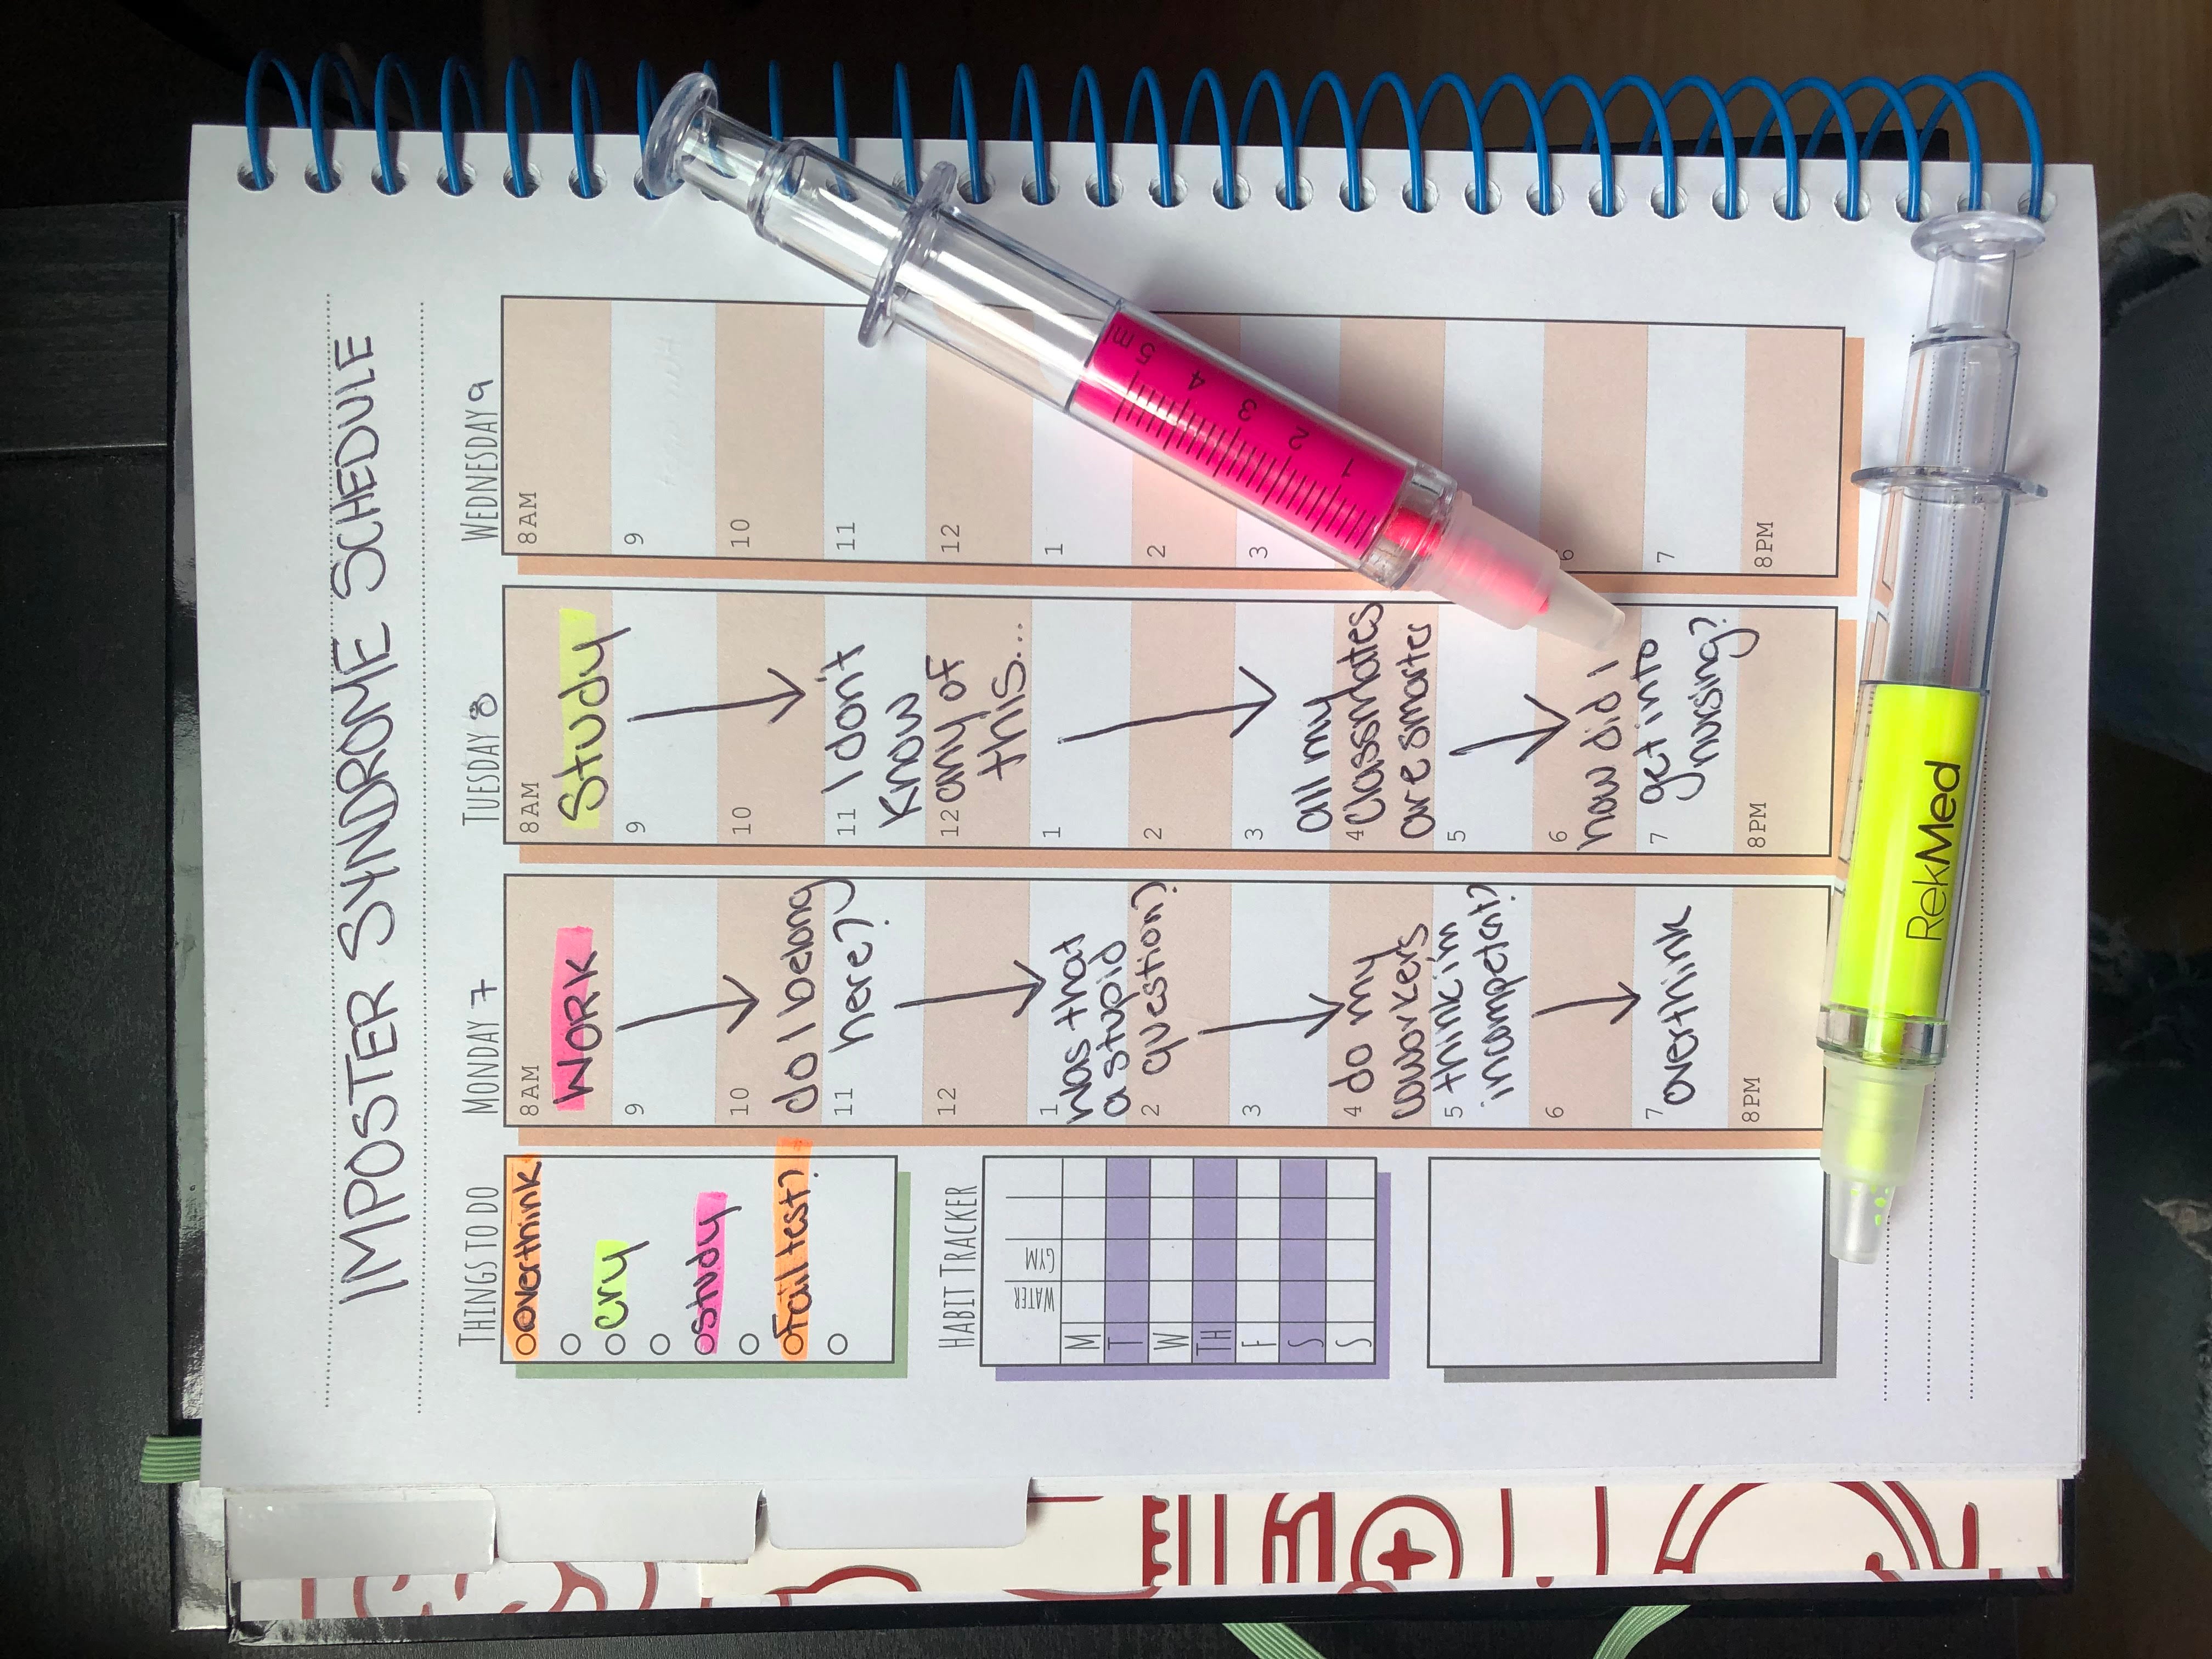 IMPOSTER SYNDROME SCHEDULE
THINGS TO DO
overthink
cry
study
Fail test?
HABIT TRACKER
WATER
GYM
M
T
W
TH
F
S
S
MONDAY 7
8AM
WORK
9
10
do I belong
11
here?
12
1
was that
a stupid
2
question?
3
4
do my
coworkers
5
think im
incompetent?
6
7
overthink
8PM
TUESDAY 8
8AM
Study
9
10
11
I don't
know
12
any of
this...
1
2
3
all my
4
classmates
are smarter
5
6
how did I
7
get into
nursing?
8PM
WEDNESDAY 9
8AM
9
10
11
12
1
2
3
6
7
8PM
5 ml
4
3
2
1
RekMed